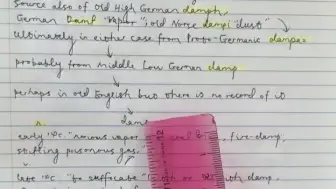 source also of Old High German damph,
German Damf "vapor"; old Norse dampi "dust")
ultimately in either case from Proto-Germanic dampaz
probably from Middle Low German damp
perhaps in old English but there is no record of it
n. damp
early 14c. "noxious vapor coal fire-damp,
stifling poisonous gas,
v.
late 14c. "to suffocate damp